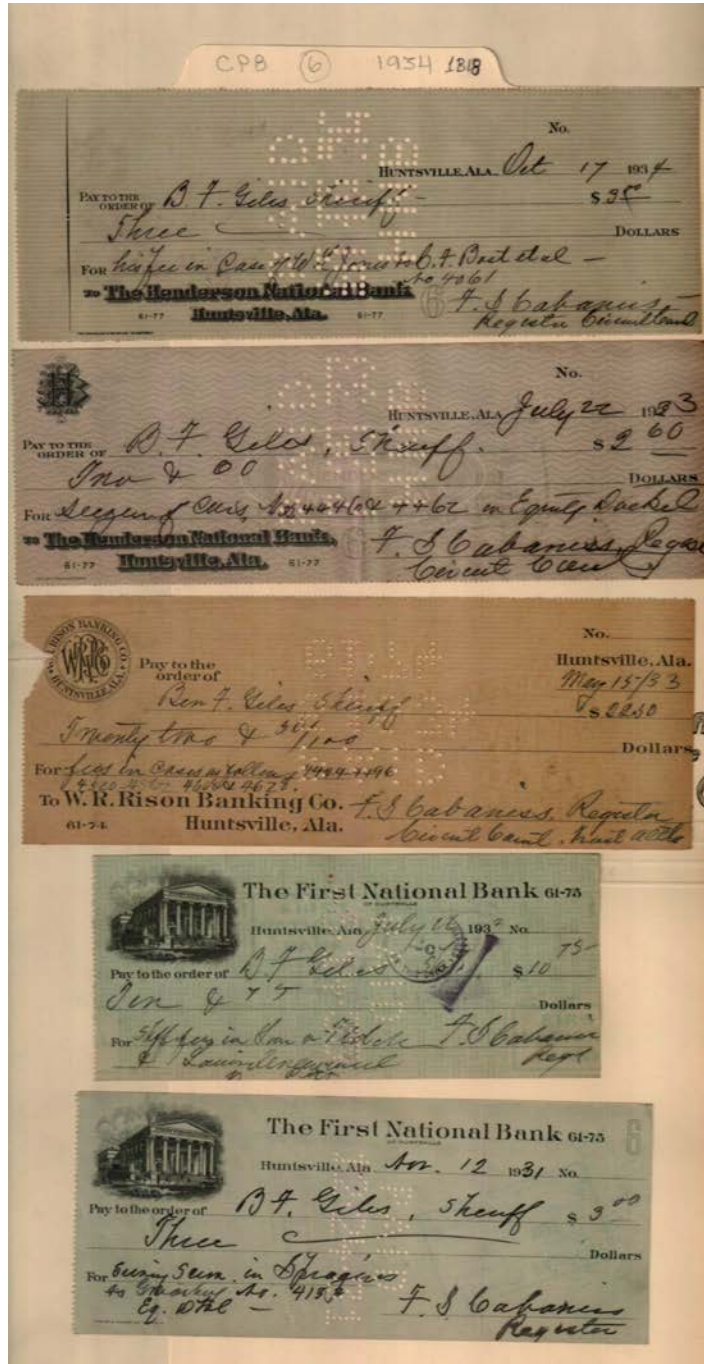 CPB 6 1934 1318
No.
HUNTSVILLE, ALA. Oct 17 1934
PAY TO THE ORDER OF B. F. Giles Sheriff $3
Three DOLLARS
FOR his fee in Case of Jones vs C. F. et al
No. 4061
TO The Henderson National Bank
61-77 Huntsville, Ala. 6 F. S. Cabaniss
Register Circuit Court
H
No.
HUNTSVILLE, ALA July 22 1933
PAY TO THE ORDER OF B. F. Giles, Sheriff. $2 60
DOLLARS
FOR in Equity Docket
TO The Henderson National Bank,
61-77 Huntsville, Ala. 61-77 F. S. Cabaniss, Register
Circuit Court
W. R. RISON BANKING CO. HUNTSVILLE, ALA.
No.
Pay to the order of Huntsville, Ala.
May 15/33
Ben F. Giles Sheriff $22.50
Twenty two & 50/100 Dollars
For fees in Cases as follows
To W. R. Rison Banking Co. F. S. Cabaniss, Register
61-74 Huntsville, Ala. Circuit Court,
The First National Bank 61-75
OF HUNTSVILLE
Huntsville, Ala July 193 No.
Pay to the order of B F Giles $10 75
Ten & 75 Dollars
For fees in F. S. Cabaniss
&
The First National Bank 61-75 6
OF HUNTSVILLE
Huntsville, Ala. Nov. 12 1931 No.
Pay to the order of B. F. Giles, Sheriff $3 00
Three Dollars
For in Spragins
vs No.
Eq. F. S. Cabaniss
Register